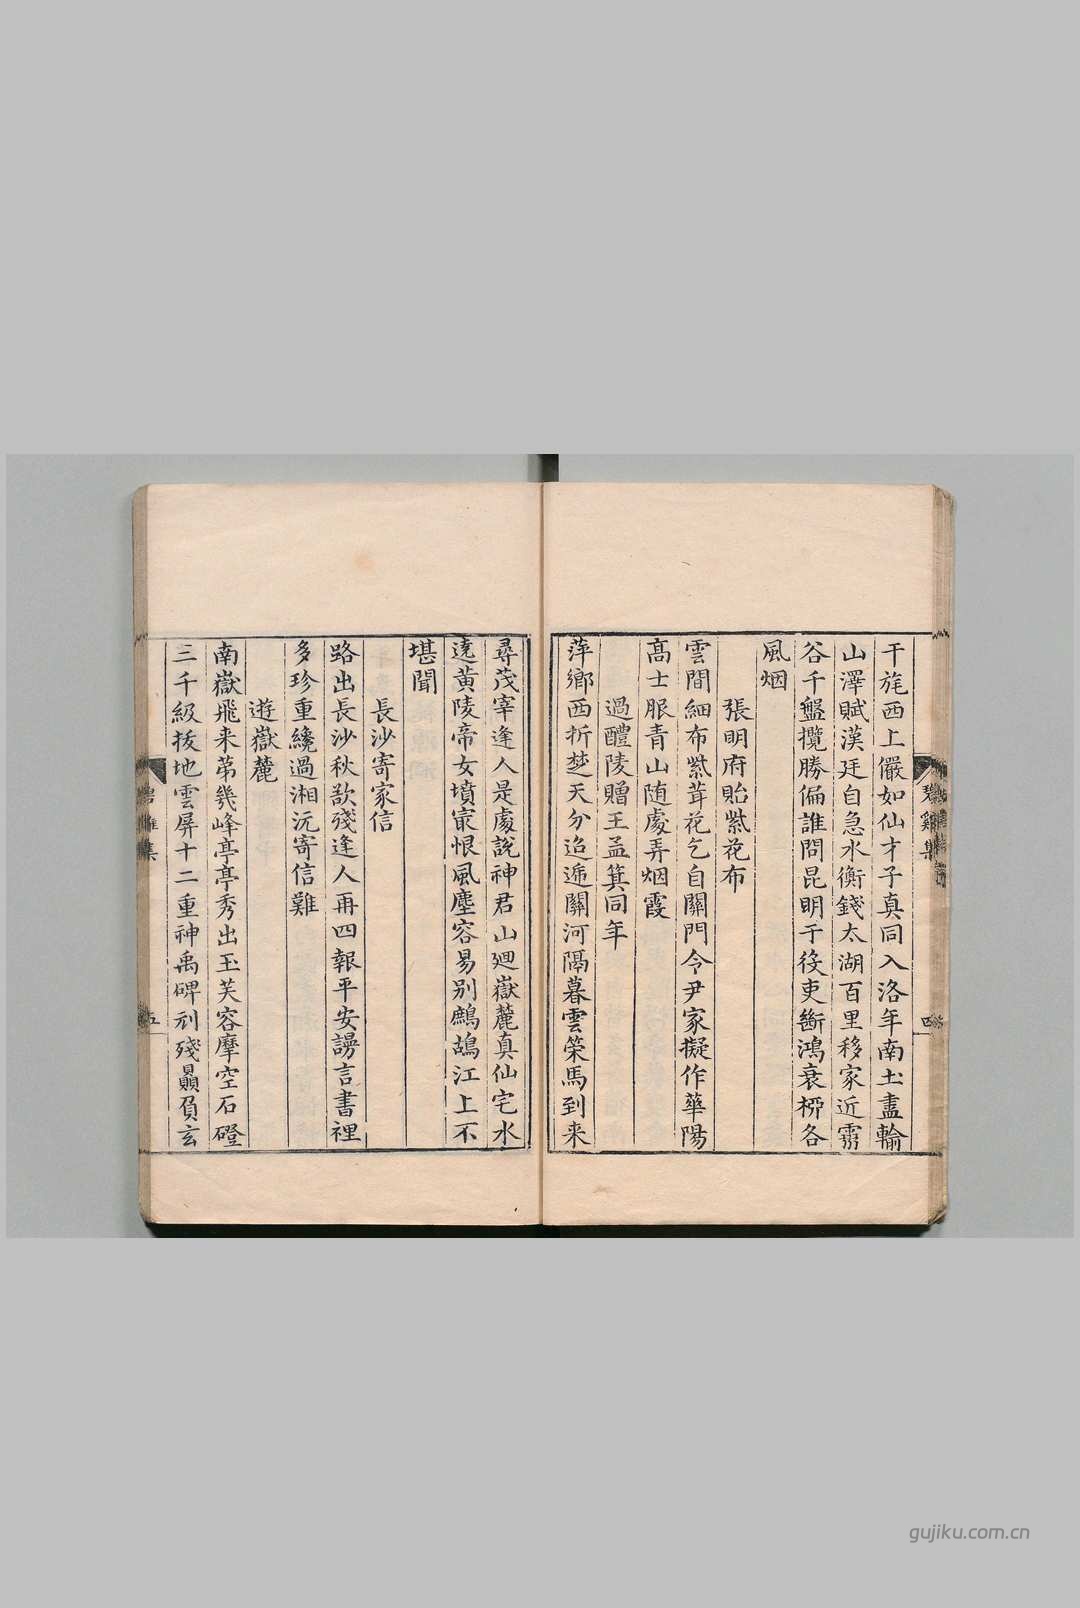 干旄西上儼如仙才子真同入洛年南土盡輸
山澤賦漢廷自急水衡錢太湖百里移家近霛
谷千盤攬勝偏誰問昆明于役吏斷鴻衰桺各
風烟
張明府貽紫花布
雲間細布紫茸花乞自關門令尹家擬作華陽
高士服青山随處弄烟霞
過醴陵贈王孟箕同年
萍鄉西折楚天分迢遞關河隔暮雲策馬到来
尋茂宰逢人是處説神君山廻嶽麓真仙宅水
遶黄陵帝女墳㝡恨風塵容易别鷓鴣江上不
堪聞
長沙寄家信
路出長沙秋欲殘逢人再四報平安謾言書裡
多珍重纔過湘沅寄信難
遊嶽麓
南嶽飛来苐幾峰亭亭秀出玉芙容摩空石磴
三千級拔地雲屏十二重神禹碑刓殘贔負玄
碧雞集
五
四
gujiku.com.cn